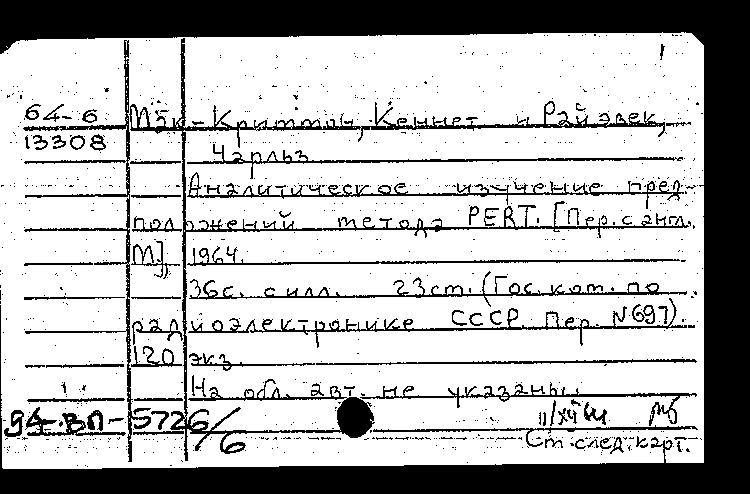 64-6 Мак-Криттон, Кеннет и Райэвек,
13308 Чарльз
Аналитическое изучение пред-
положений метода PERT. [Пер. с англ.
М], 1964.
36с. с илл. 23см. (Гос. ком. по
радиоэлектронике СССР. Пер. N697).
120 экз.
На обл. авт. не указаны.
94-ВП-5726/6
11/XII 64
См. след. карт.